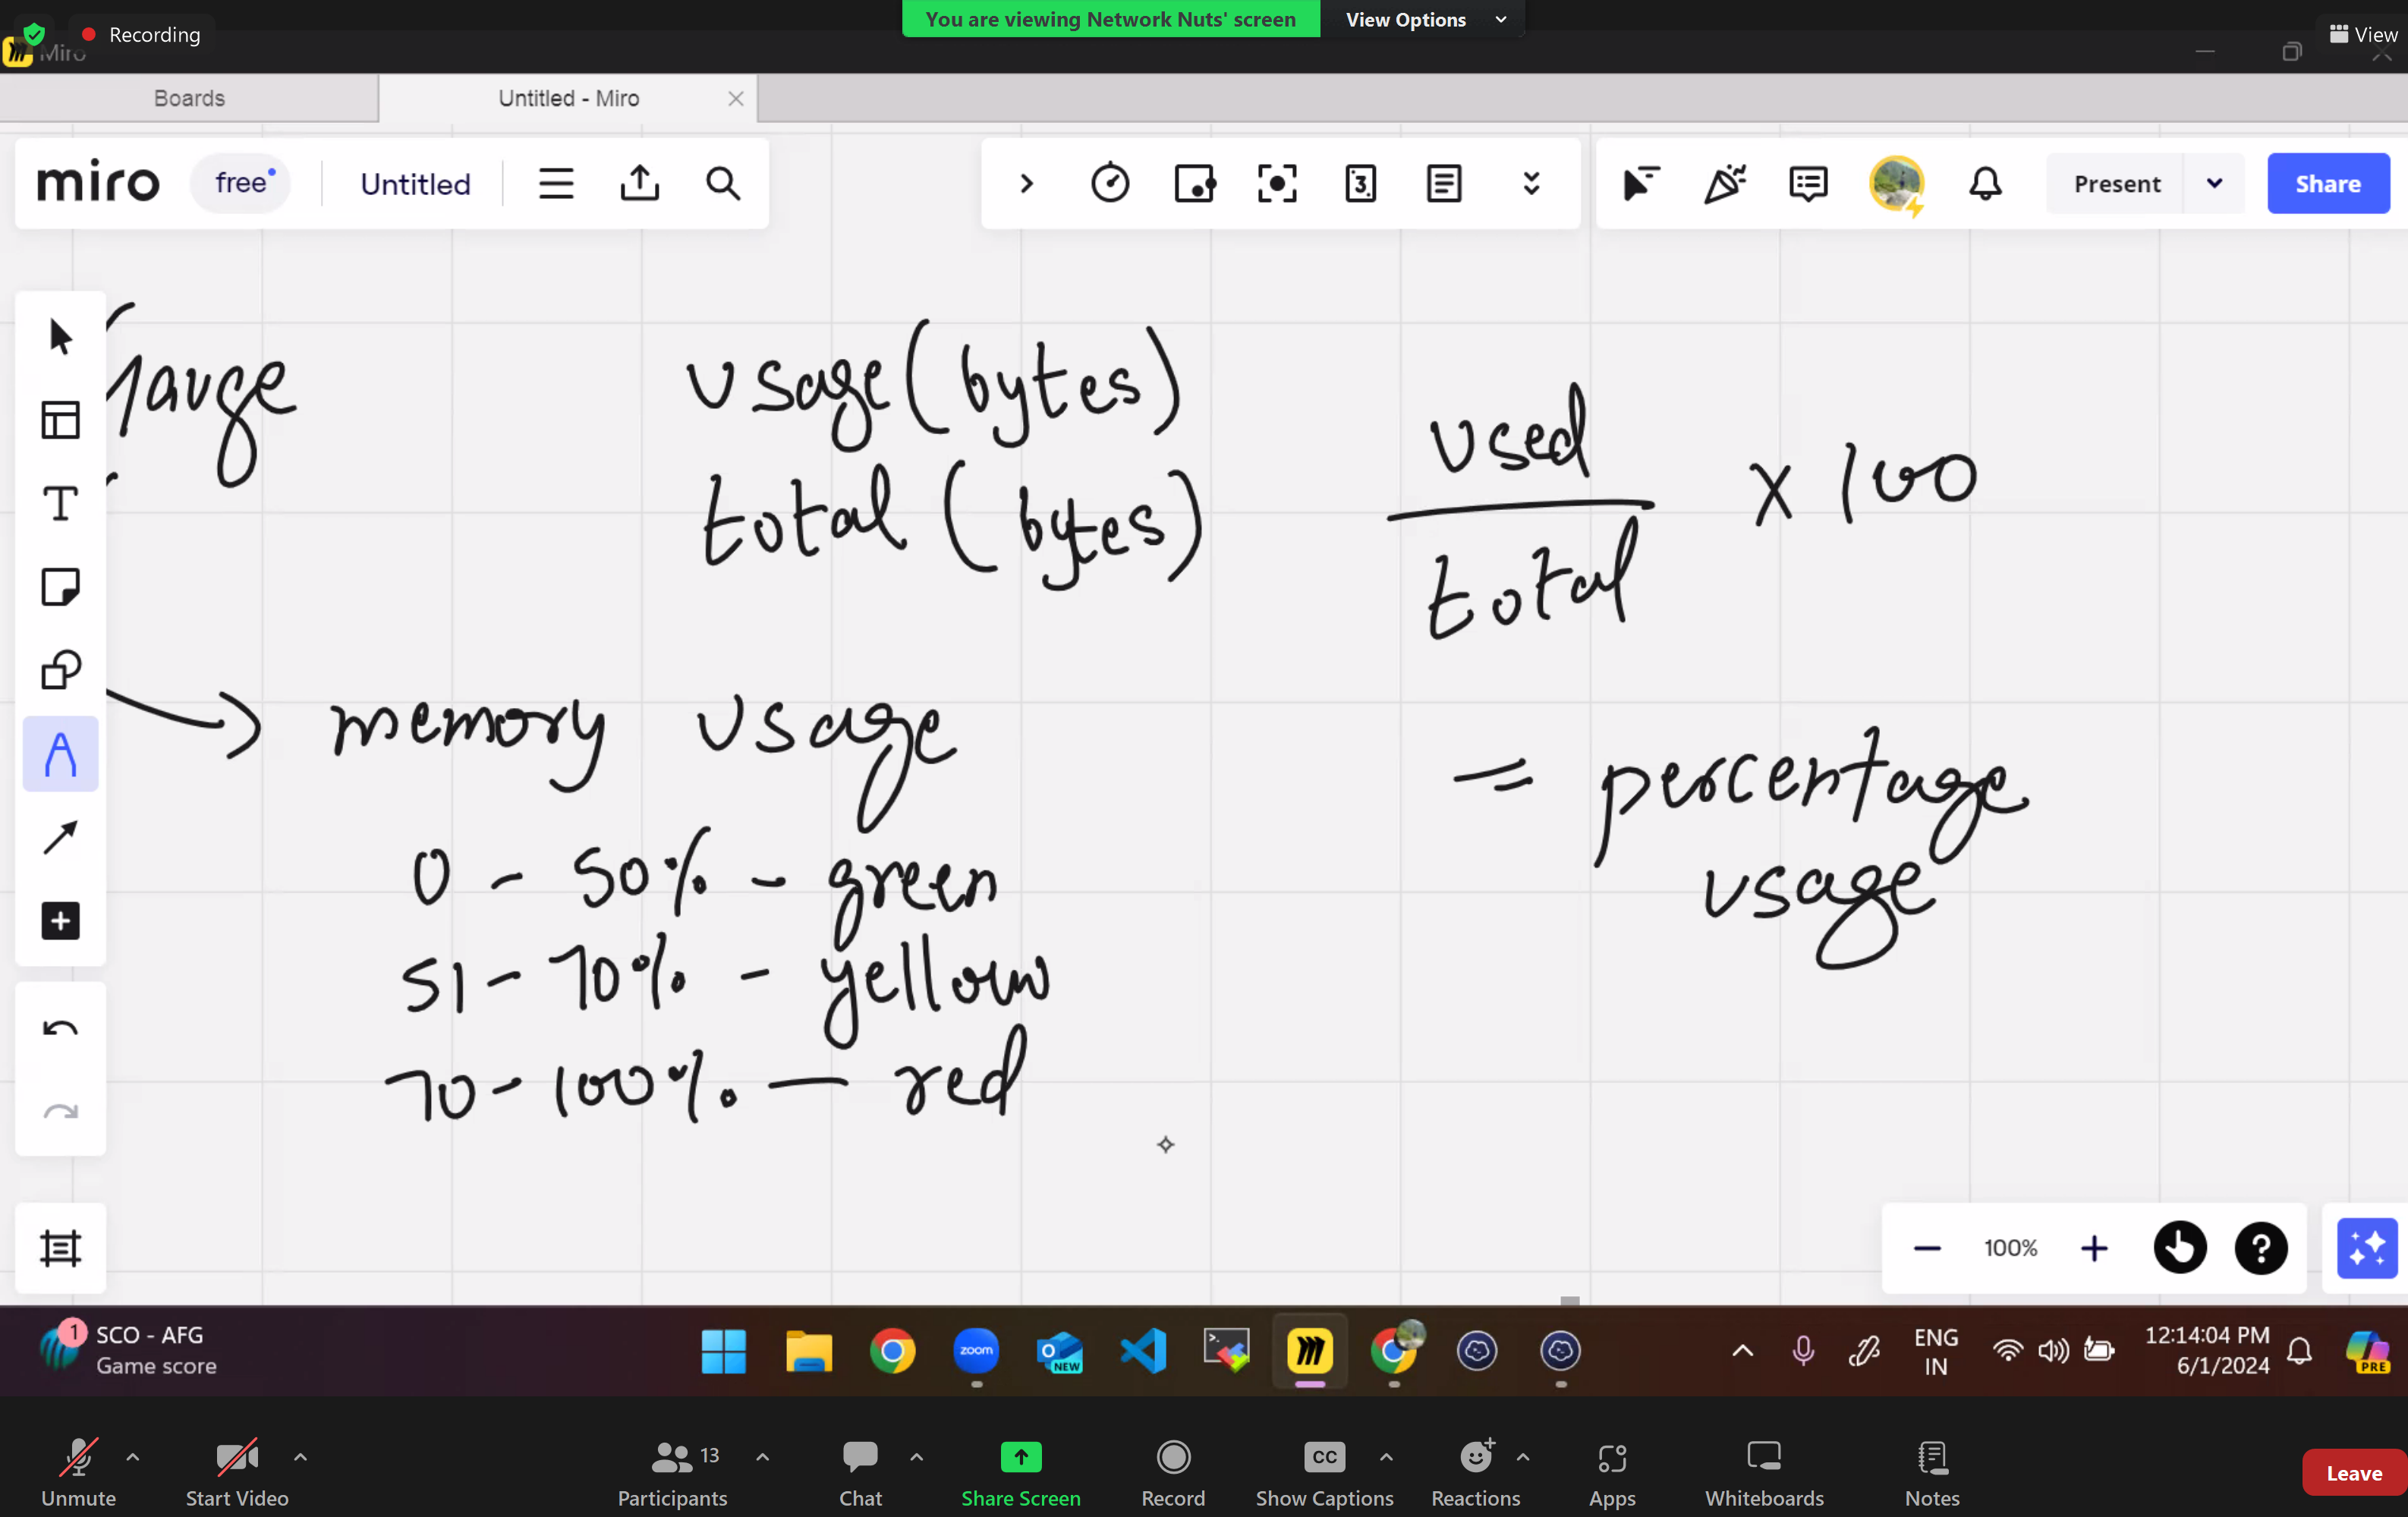 You are viewing Network Nuts' screen View Options
Recording
View
Miro
Boards
Untitled - Miro
miro free Untitled
3
Present
Share
usage (bytes)
total (bytes)
used
total
x 100
memory usage
= percentage
usage
0 - 50% - green
51 - 70% - yellow
70 - 100% - red
100%
1
SCO - AFG
Game score
zoom
NEW
ENG
IN
12:14:04 PM
6/1/2024
PRE
Unmute
Start Video
13
Participants
Chat
Share Screen
Record
CC
Show Captions
Reactions
Apps
Whiteboards
Notes
Leave